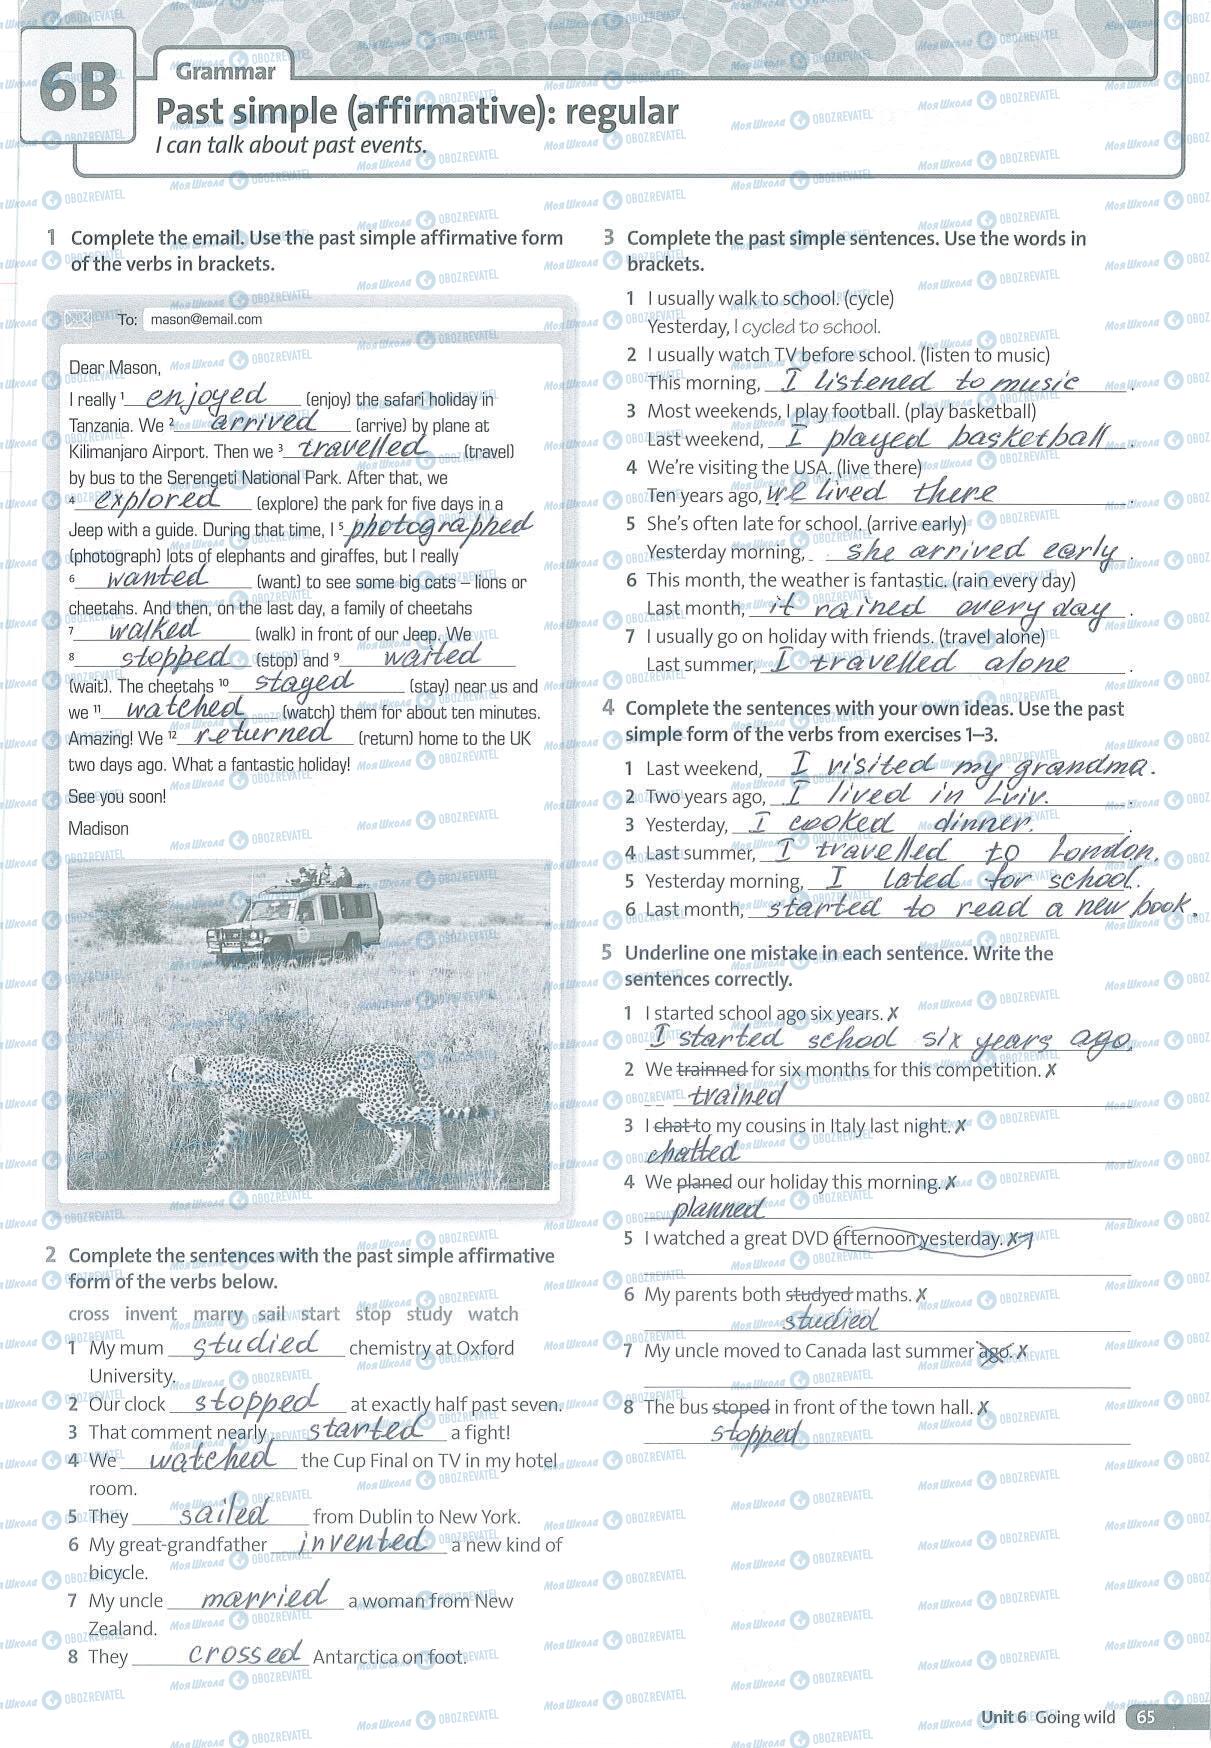 6B
Grammar
Past simple (affirmative): regular
I can talk about past events.
1 Complete the email. Use the past simple affirmative form
of the verbs in brackets.
To: mason@email.com
Dear Mason,
I really 1 enjoyed (enjoy) the safari holiday in
Tanzania. We 2 arrived (arrive) by plane at
Kilimanjaro Airport. Then we 3 travelled (travel)
by bus to the Serengeti National Park. After that, we
4 explored (explore) the park for five days in a
Jeep with a guide. During that time, I 5 photographed
(photograph) lots of elephants and giraffes, but I really
6 wanted (want) to see some big cats – lions or
cheetahs. And then, on the last day, a family of cheetahs
7 walked (walk) in front of our Jeep. We
8 stopped (stop) and 9 waited
(wait). The cheetahs 10 stayed (stay) near us and
we 11 watched (watch) them for about ten minutes.
Amazing! We 12 returned (return) home to the UK
two days ago. What a fantastic holiday!
See you soon!
Madison
2 Complete the sentences with the past simple affirmative
form of the verbs below.
cross invent marry sail start stop study watch
1 My mum studied chemistry at Oxford
University.
2 Our clock stopped at exactly half past seven.
3 That comment nearly started a fight!
4 We watched the Cup Final on TV in my hotel
room.
5 They sailed from Dublin to New York.
6 My great-grandfather invented a new kind of
bicycle.
7 My uncle married a woman from New
Zealand.
8 They crossed Antarctica on foot.
3 Complete the past simple sentences. Use the words in
brackets.
1 I usually walk to school. (cycle)
Yesterday, I cycled to school.
2 I usually watch TV before school. (listen to music)
This morning, I listened to music.
3 Most weekends, I play football. (play basketball)
Last weekend, I played basketball.
4 We're visiting the USA. (live there)
Ten years ago, we lived there.
5 She's often late for school. (arrive early)
Yesterday morning, she arrived early.
6 This month, the weather is fantastic. (rain every day)
Last month, it rained every day.
7 I usually go on holiday with friends. (travel alone)
Last summer, I travelled alone.
4 Complete the sentences with your own ideas. Use the past
simple form of the verbs from exercises 1–3.
1 Last weekend, I visited my grandma.
2 Two years ago, I lived in Lviv.
3 Yesterday, I cooked dinner.
4 Last summer, I travelled to London.
5 Yesterday morning, I lated for school.
6 Last month, started to read a new book.
5 Underline one mistake in each sentence. Write the
sentences correctly.
1 I started school ago six years. ✗
I started school six years ago.
2 We trainned for six months for this competition. ✗
trained
3 I chat to my cousins in Italy last night. ✗
chatted
4 We planed our holiday this morning. ✗
planned
5 I watched a great DVD afternoon yesterday. ✗
6 My parents both studyed maths. ✗
studied
7 My uncle moved to Canada last summer ago. ✗
8 The bus stoped in front of the town hall. ✗
stopped
Unit 6 Going wild 65
Моя Школа OBOZREVATEL